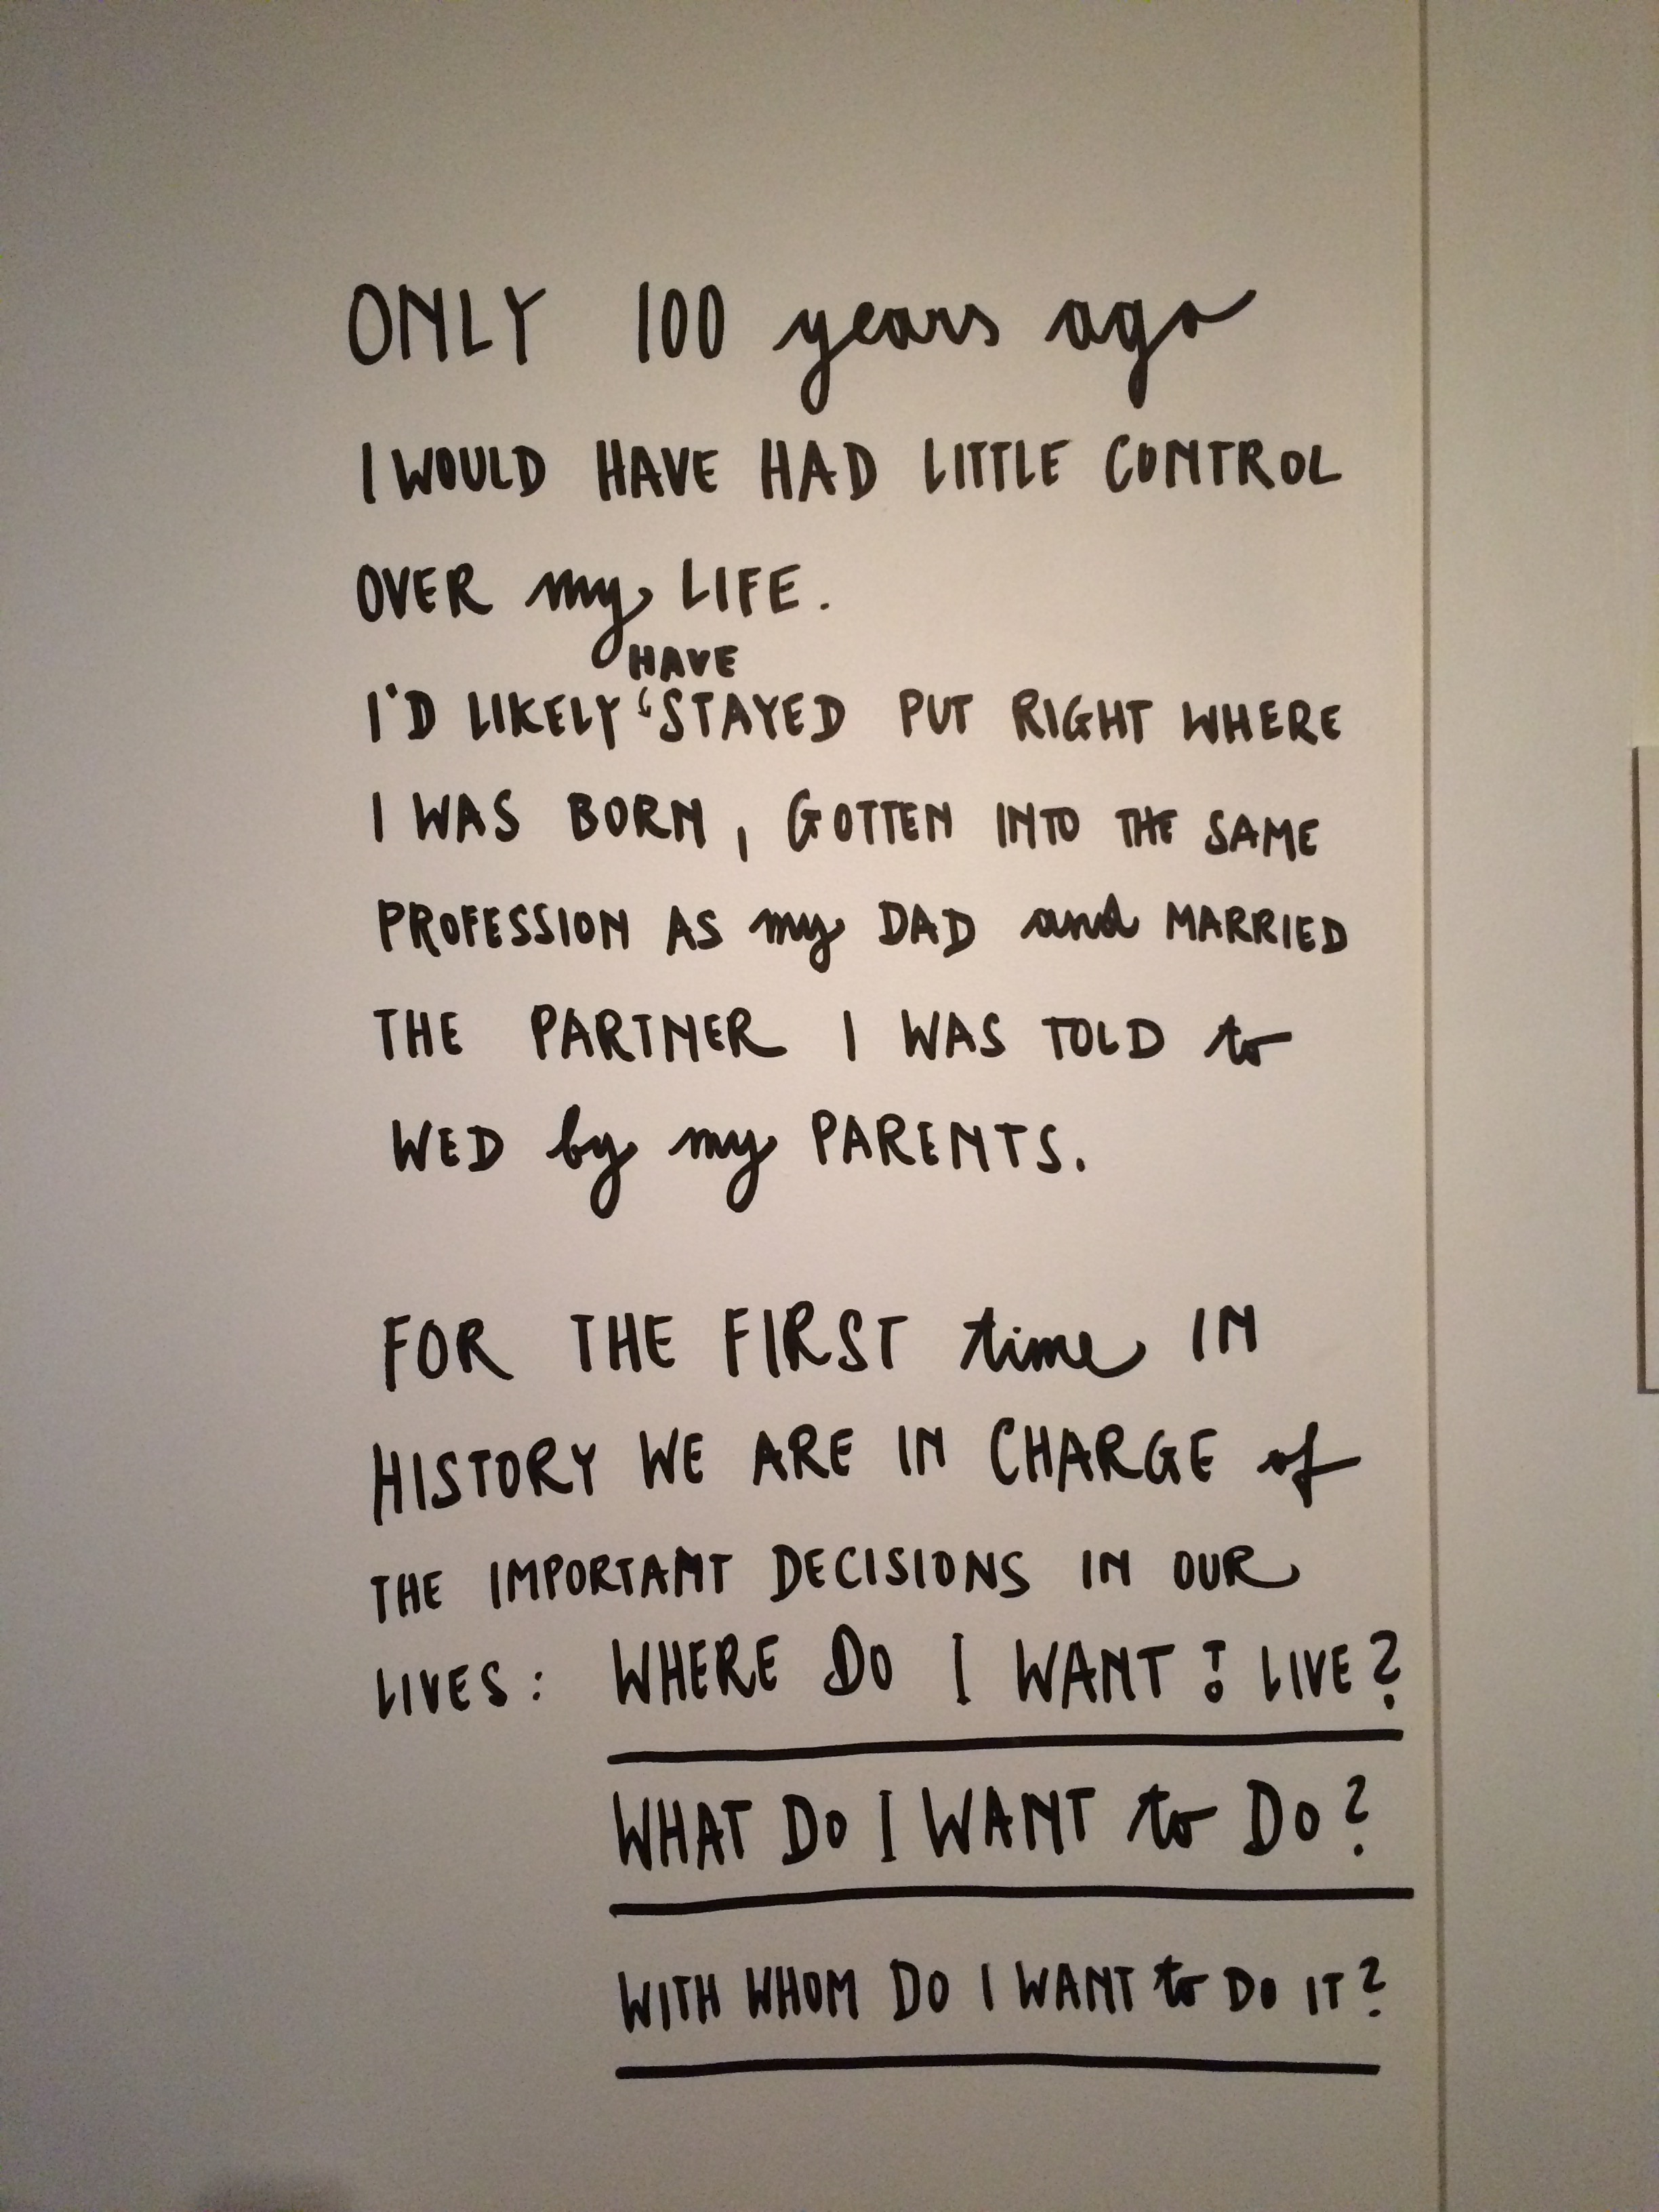 ONLY 100 years ago
I WOULD HAVE HAD LITTLE CONTROL
OVER my LIFE.
HAVE
I'D LIKELY STAYED PUT RIGHT WHERE
I WAS BORN, GOTTEN INTO THE SAME
PROFESSION AS my DAD and MARRIED
THE PARTNER I WAS TOLD to
WED by my PARENTS.
FOR THE FIRST time IN
HISTORY WE ARE IN CHARGE of
THE IMPORTANT DECISIONS IN OUR
LIVES: WHERE DO I WANT TO LIVE?
WHAT DO I WANT to DO?
WITH WHOM DO I WANT to DO IT?